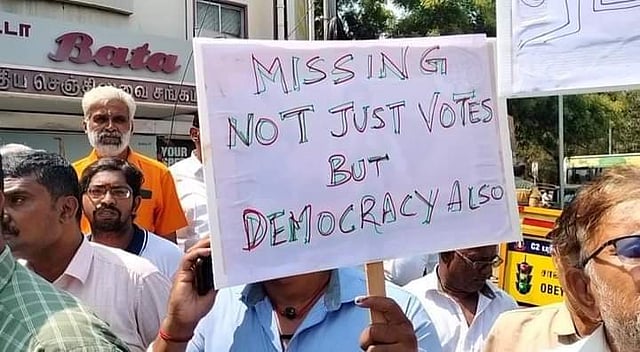 டா
Bata
திய செஞ்சிலுவை சங்க
MISSING
NOT JUST VOTES
BUT
DEMOCRACY ALSO
YOUR
C2
OBEY